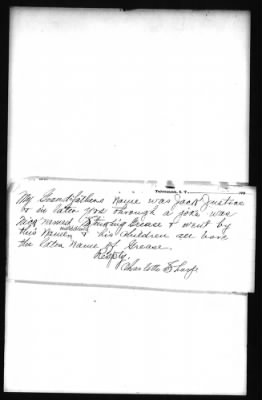 Tahlequah, I. T. 190
My Grandfathers name was Jack Justice
but in later yrs through a joke was
nick named Stinking Grease & went by
this name & his children all bore
the later name of Grease.
Respty.
Charlotte Sharp